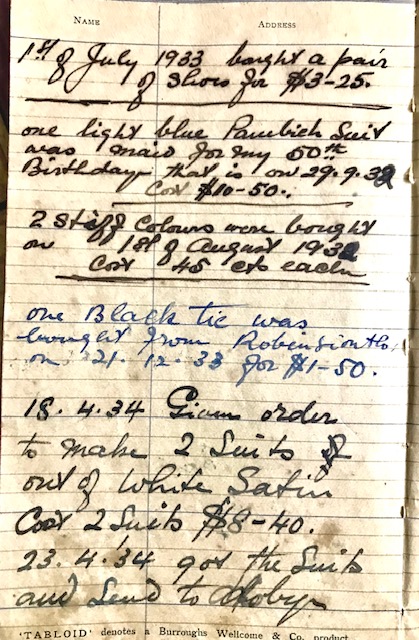 NAME ADDRESS
1st of July 1933 bought a pair
of Shoes for $3-25.
one light blue Suit
was maid for my 50th
Birthday that is on 29.9.32
Cost $10-50.
2 Stiff Colours were bought
on 1st of August 1932
Cost 45 cts each
one Black tie was
bought from Robinson &Co,
on 21. 12. 33 for $1-50.
18. 4.34 Given order
to make 2 Suits
out of White Satin
Cost 2 Suits $8-40.
23.4.34 got the Suits
and Send to
'TABLOID' denotes a Burroughs Wellcome & Co. product